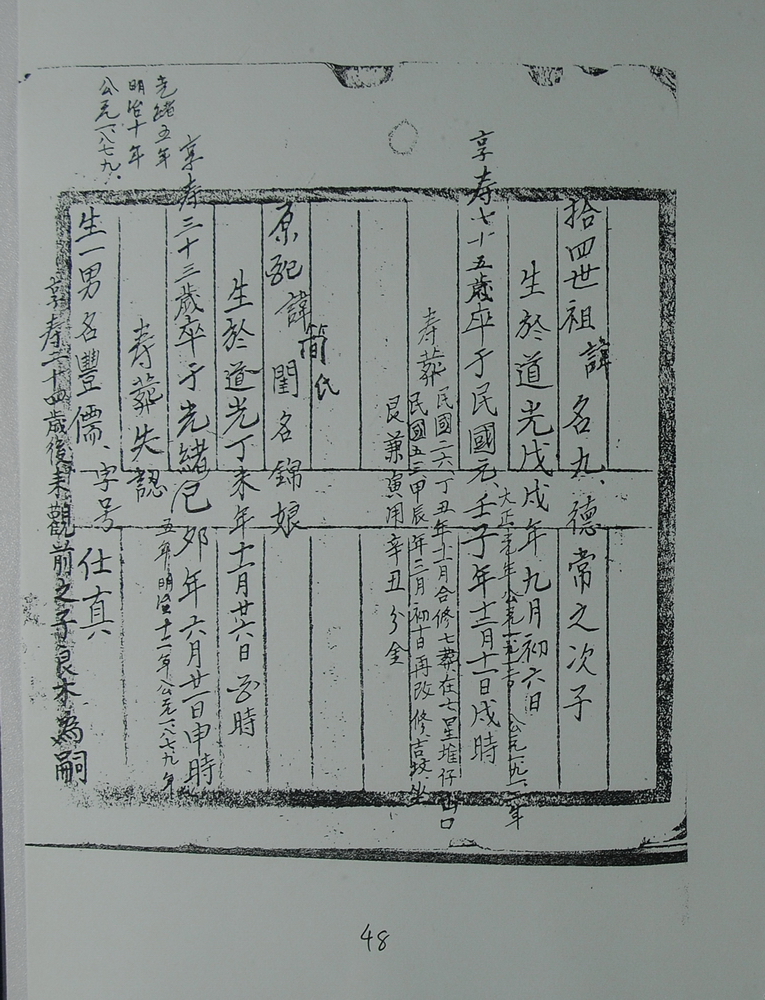 拾四世祖諱名九、德常之次子
生於道光戊戌年九月初六日
大正元年 公元一九一二年
享寿七十五歲卒于民國元、壬子年十二月十一日戌時
寿葬民國二六丁丑年十一月合修七葬在七星堆仔山口
民國五三甲辰年三月初十日再改修吉坟坐
艮兼寅用辛丑分金
原配諱簡氏閨名錦娘
生於道光丁未年十一月廿六日 時
享寿三十三歲卒于光緒己夘年六月廿一日申時
五年明治十二年公元一八七九年
光緒五年
明治十年
公元一八七九、
寿葬失認
生一男名豐儒、字号仕真
享寿 十四歲後来觀前之子良木為嗣
48